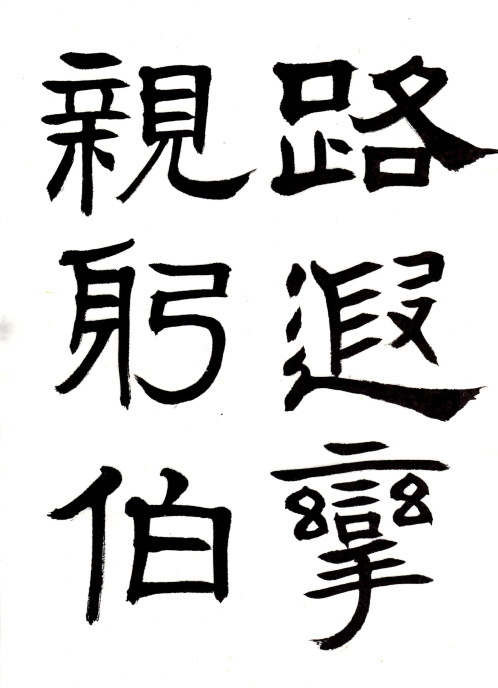 路遐攣
親躬伯